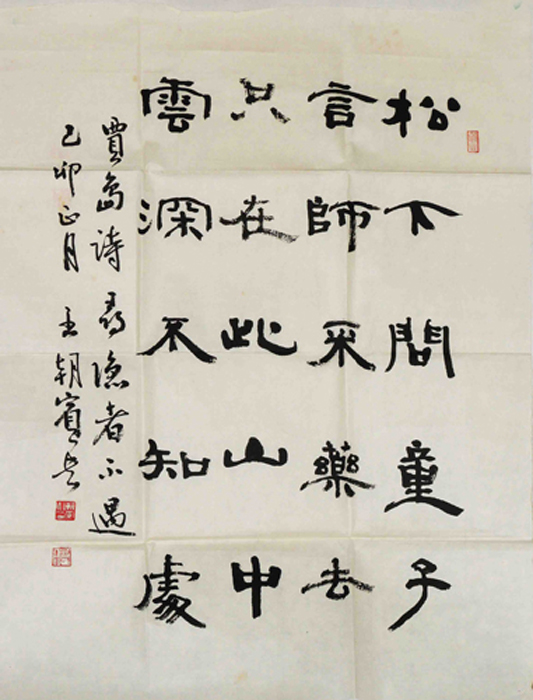 松下問童子
言師采藥去
只在此山中
雲深不知處
賈島詩尋隱者不遇
己卯正月王朝賓書